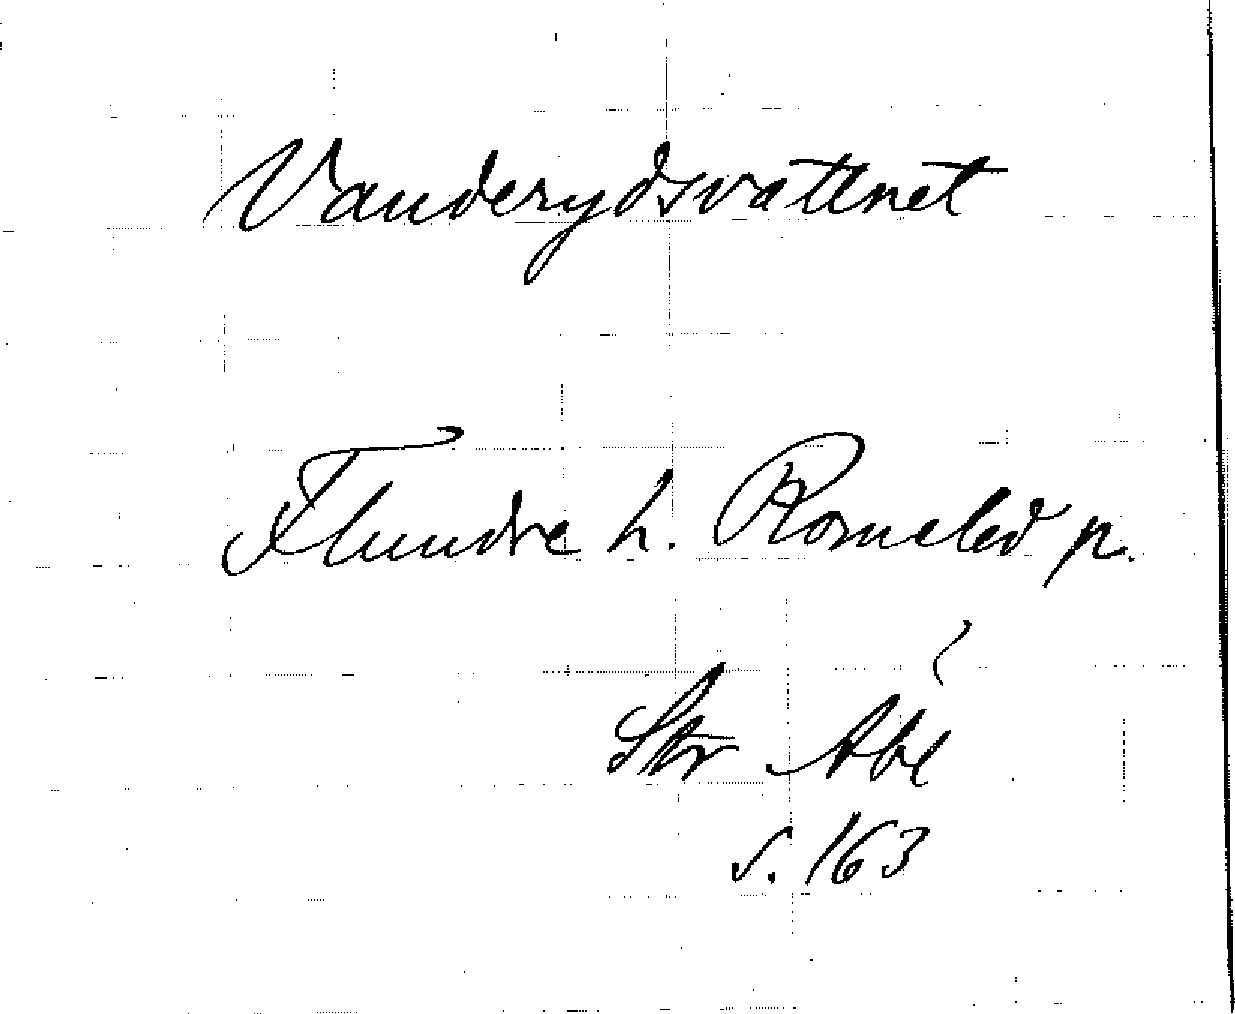 Vanderydsvattnet
Flundre h. Romeled p.
Str Abé
s. 163